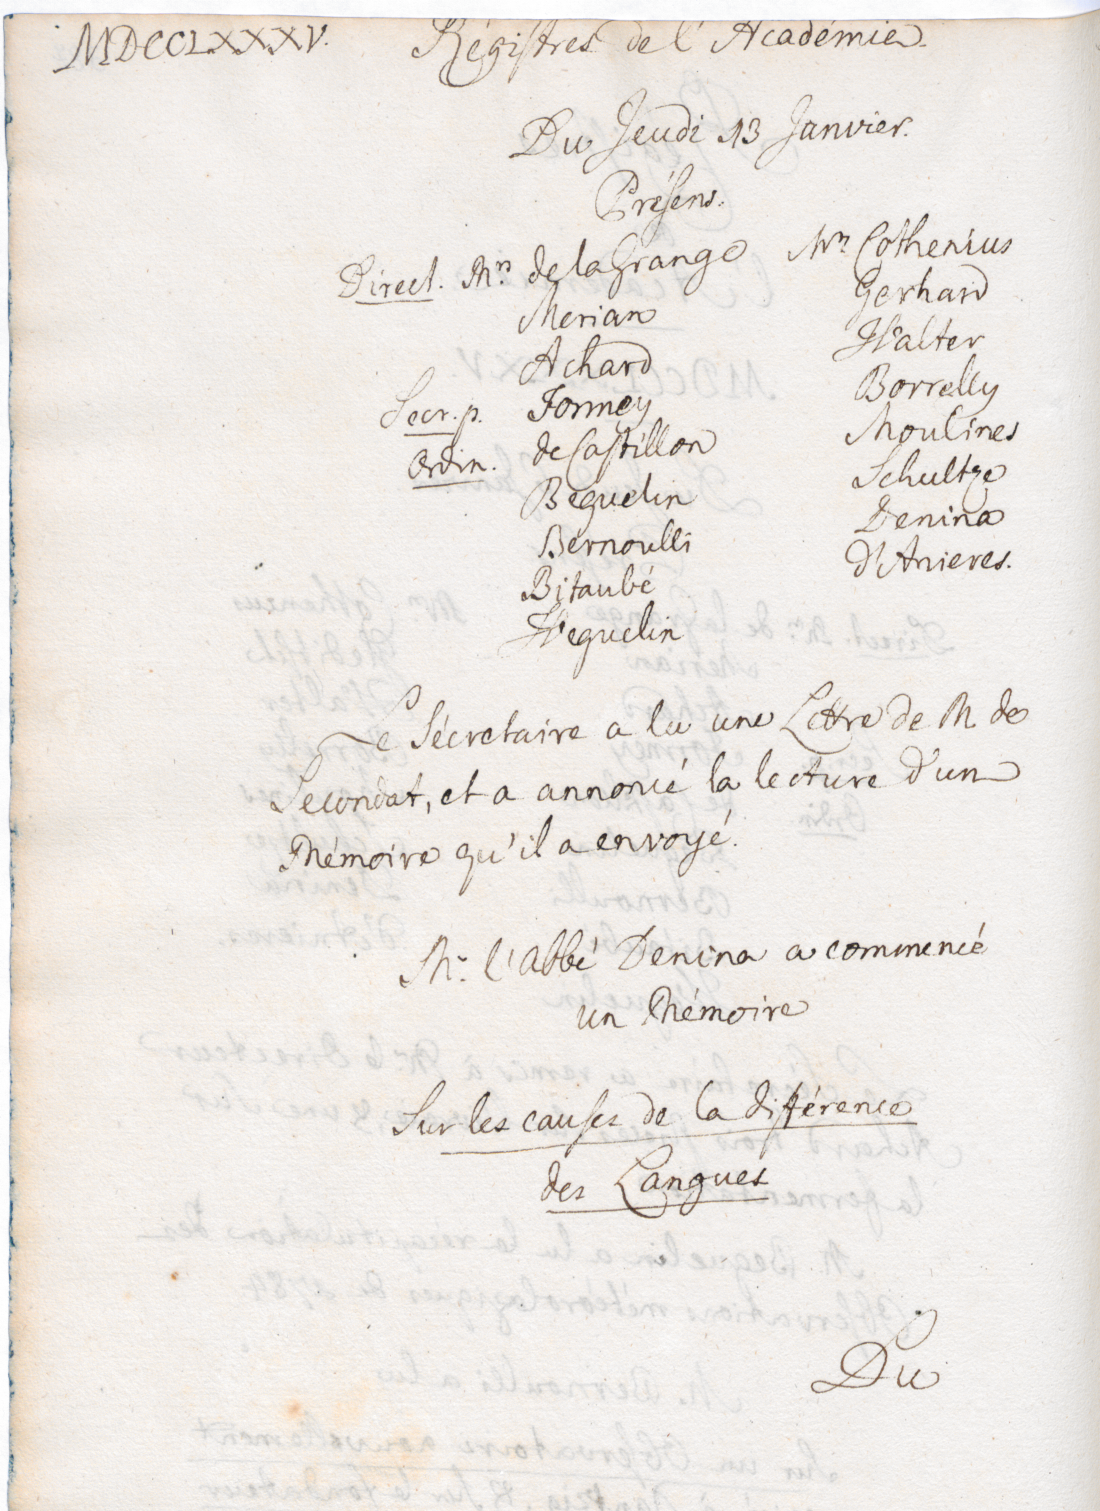 MDCCLXXXV. Régistres de l'Académie.
Du Jeudi 13 Janvier.
Présens.
Direct. Mrs de la Grange
Merian
Achard
Secr. p. Formey
Ordin. de Castillon
Beguelin
Bernoulli
Bitaubé
Weguelin
Mrs Cothenius
Gerhard
Walter
Borrelly
Moulines
Schultze
Denina
d'Anieres.
Le Sécretaire a lu une Lettre de M de
Secondat, et a annoncé la lecture d'un
Mémoire qu'il a envoyé.
Mr. l'Abbé Denina a commencé
un Mémoire
Sur les causes de la différence
des Langues
Du